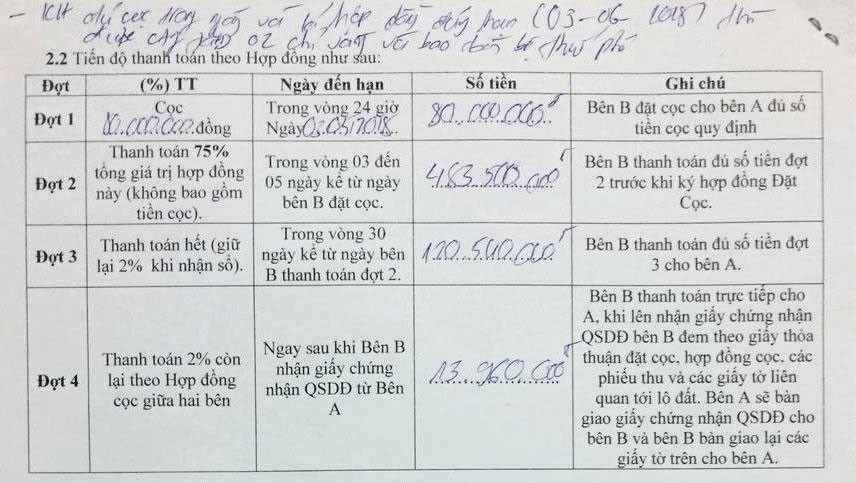 - KH chỉ cọc trong ngày và ký hợp đồng đúng hạn (03-06-2018) thì
được CĐT tặng 02 chỉ vàng và bao toàn bộ thuế phí
2.2 Tiến độ thanh toán theo Hợp đồng như sau:
Đợt (%) TT Ngày đến hạn Số tiền Ghi chú
Đợt 1
Cọc
80.000.000.đồng
Trong vòng 24 giờ
Ngày03.03/2018.
80.000.000đ
Bên B đặt cọc cho bên A đủ số
tiền cọc quy định
Đợt 2
Thanh toán 75%
tổng giá trị hợp đồng
này (không bao gồm
tiền cọc).
Trong vòng 03 đến
05 ngày kể từ ngày
bên B đặt cọc.
483.500.000đ
Bên B thanh toán đủ số tiền đợt
2 trước khi ký hợp đồng Đặt
Cọc.
Đợt 3
Thanh toán hết (giữ
lại 2% khi nhận sổ).
Trong vòng 30
ngày kể từ ngày bên
B thanh toán đợt 2.
120.540.000đ
Bên B thanh toán đủ số tiền đợt
3 cho bên A.
Đợt 4
Thanh toán 2% còn
lại theo Hợp đồng
cọc giữa hai bên
Ngay sau khi Bên B
nhận giấy chứng
nhận QSDĐ từ Bên
A
13.960.000đ
Bên B thanh toán trực tiếp cho
A, khi lên nhận giấy chứng nhận
QSDĐ bên B đem theo giấy thỏa
thuận đặt cọc, hợp đồng cọc, các
phiếu thu và các giấy tờ liên
quan tới lô đất. Bên A sẽ bàn
giao giấy chứng nhận QSDĐ cho
bên B và bên B bàn giao lại các
giấy tờ trên cho bên A.